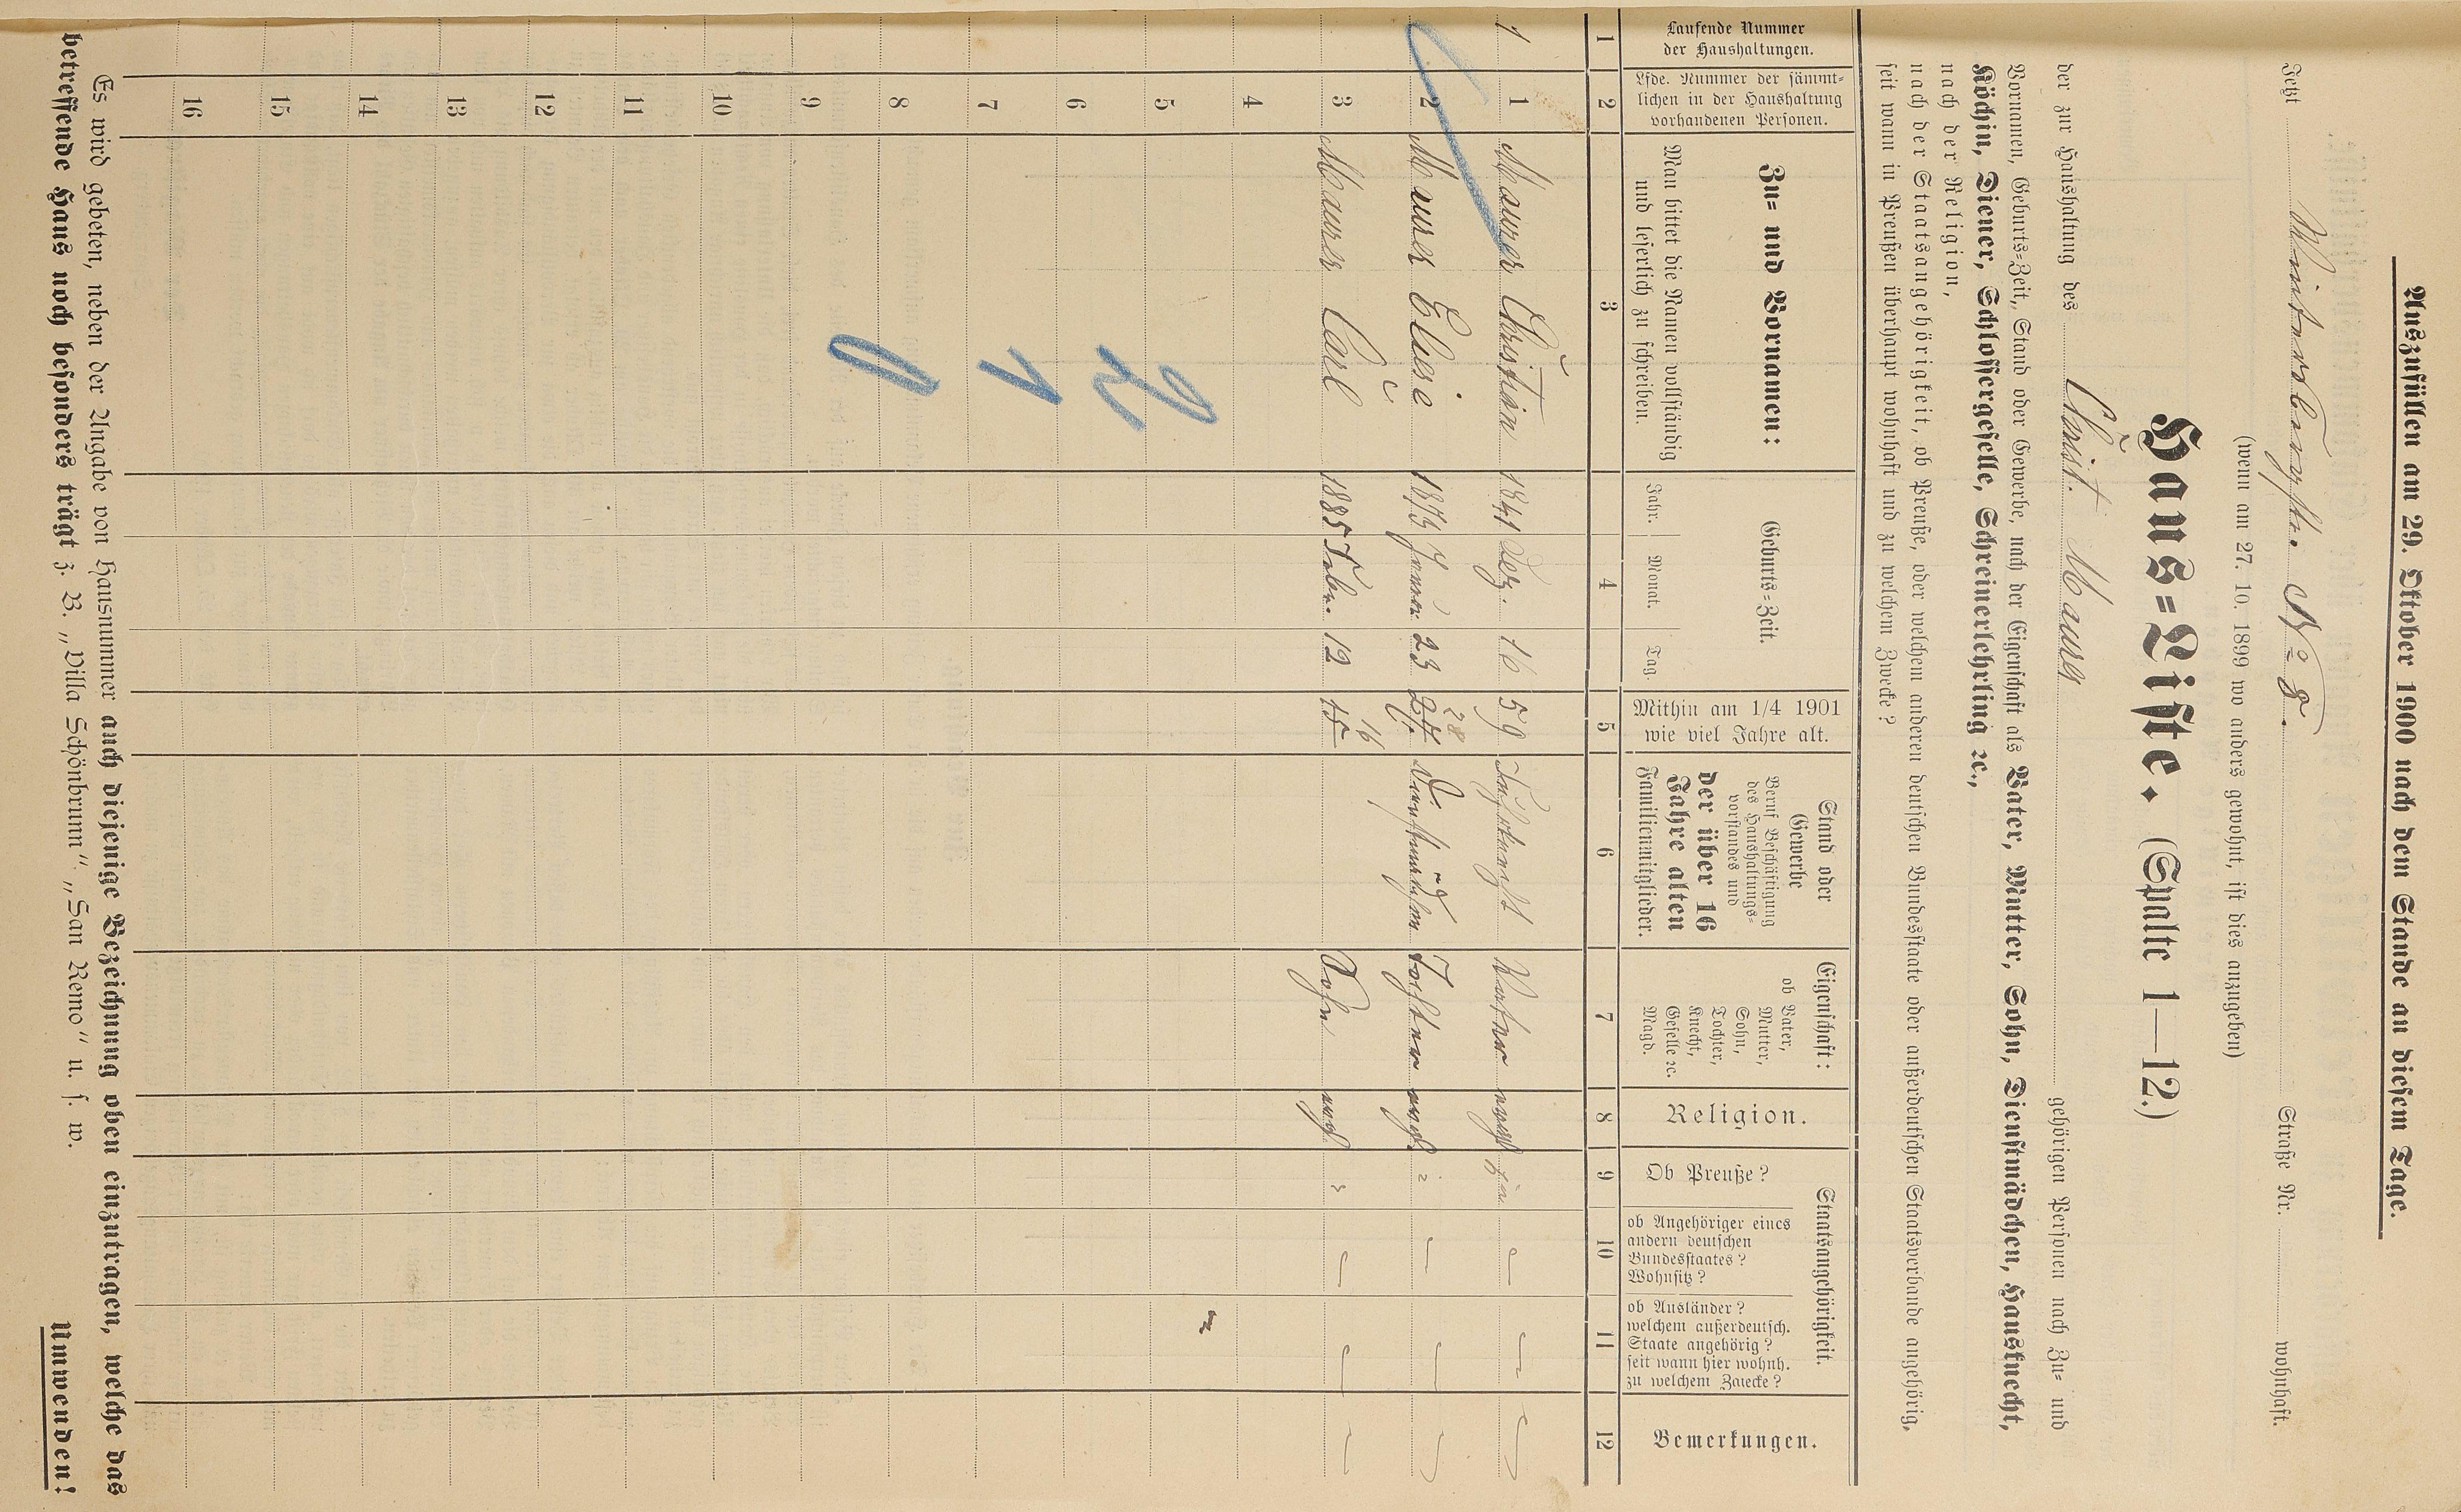 Auszufüllen am 29. Oktober 1900 nach dem Stande an diesem Tage.
Jetzt Winterbergstr. No 8. Straße Nr. wohnhaft.
(wenn am 27. 10. 1899 wo anders gewohnt, ist dies anzugeben)
Haus=Liste. (Spalte 1—12.)
der zur Haushaltung des Christ. Maurer gehörigen Personen nach Zu= und
Vornamen, Geburts=Zeit, Stand oder Gewerbe, nach der Eigenschaft als Vater, Mutter, Sohn, Dienstmädchen, Hausknecht,
Köchin, Diener, Schlossergeselle, Schreinerlehrling ꝛc.,
nach der Religion,
nach der Staatsangehörigkeit, ob Preuße, oder welchem anderen deutschen Bundesstaate oder außerdeutschen Staatsverbande angehörig,
seit wann in Preußen überhaupt wohnhaft und zu welchem Zwecke?
Laufende Nummer
der Haushaltungen.
Lfde. Nummer der sämmt=
lichen in der Haushaltung
vorhandenen Personen.
Zu= und Vornamen:
Man bittet die Namen vollständig
und leserlich zu schreiben.
Geburts=Zeit.
Jahr. Monat. Tag.
Mithin am 1/4 1901
wie viel Jahre alt.
Stand oder
Gewerbe
Beruf Beschäftigung
des Haushaltungs=
vorstandes und
der über 16
Jahre alten
Familienmitglieder.
Eigenschaft:
ob Vater,
Mutter,
Sohn,
Tochter,
Knecht,
Geselle ꝛc.
Magd.
Religion.
Staatsangehörigkeit.
Ob Preuße?
ob Angehöriger eines
andern deutschen
Bundesstaates?
Wohnsitz?
ob Ausländer?
welchem außerdeutsch.
Staate angehörig?
seit wann hier wohnh.
zu welchem Zwecke?
Bemerkungen.
1 2 3 4 5 6 7 8 9 10 11 12
1 1 Maurer Christian 1841 Dez. 16 59 Vater evgl ja
2 Maurer Eluise 1873 Januar 23 27. 28 Tochter evgl. "
3 Maurer Carl 1885 Febr. 12 15 16 Sohn evgl. "
4
5
6
7
8
9
10
11
12
13
14
15
16
2
1
0
Es wird gebeten, neben der Angabe von Hausnummer auch diejenige Bezeichnung oben einzutragen, welche das
betreffende Haus noch besonders trägt z. B. „Villa Schönbrunn“ „San Remo“ u. s. w.
Umwenden!